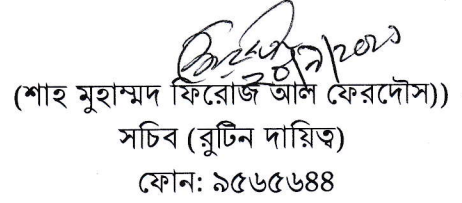 (শাহ মুহাম্মদ ফিরোজ আল ফেরদৌস))
সচিব (রুটিন দায়িত্ব)
ফোন: ৯৫৬৫৬৪৪